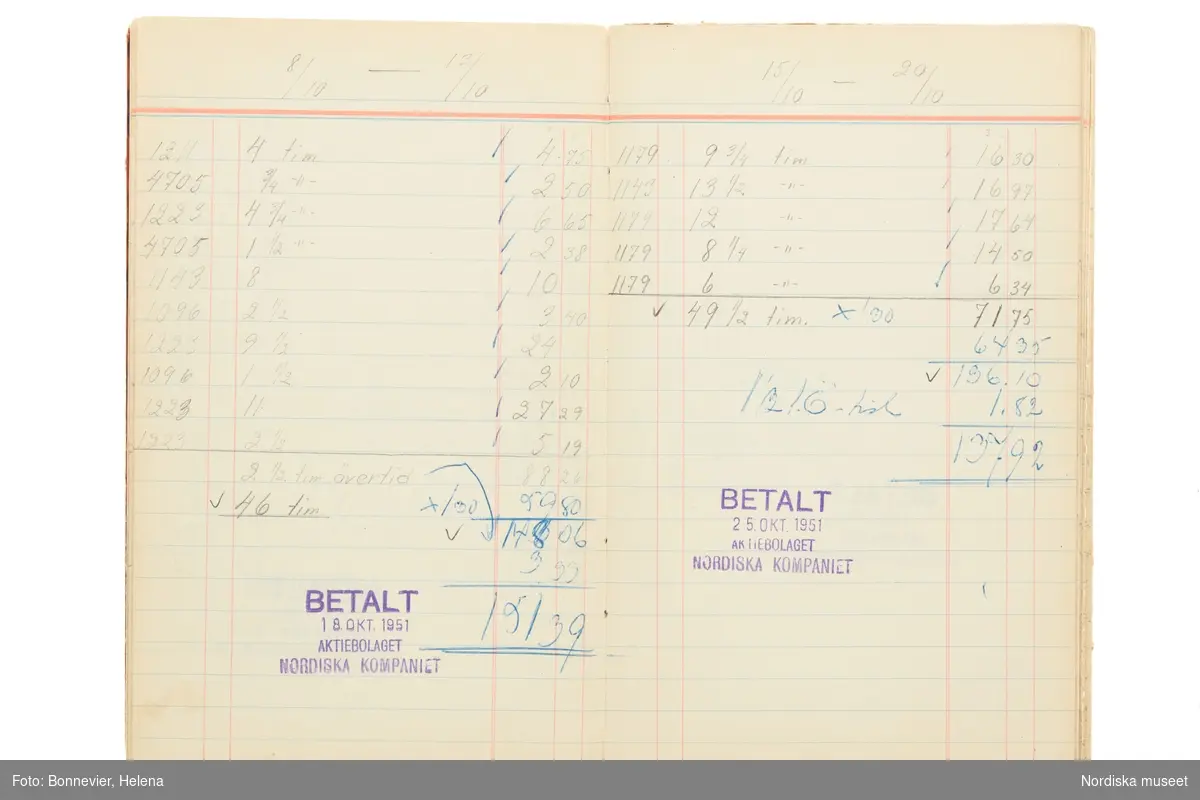 8/10 — 13/10
1211 4 tim 4.75
4705 3/4 -"- 2 50
1223 4 3/4 -"- 6 65
4705 1 1/2 -"- 2 38
1143 8 10
1096 2 1/2 3 40
1223 9 1/2 24
1096 1 1/2 2 10
1223 11 27 29
1223 2 1/2 5 19
2 1/2 tim övertid 88 26
✓ 46 tim x 130 59 80
✓ 148 06
3 33
151 39
BETALT
18. OKT. 1951
AKTIEBOLAGET
NORDISKA KOMPANIET
15/10 — 20/10
1179 9 3/4 tim 16 30
1143 13 1/2 -"- 16 97
1179 12 -"- 17 64
1179 8 1/4 -"- 14 50
1179 6 -"- 6 34
✓ 49 1/2 tim. x 130 71 75
64 35
✓ 136.10
1.82
137,92
BETALT
25. OKT. 1951
AKTIEBOLAGET
NORDISKA KOMPANIET
Foto: Bonnevier, Helena
Nordiska museet